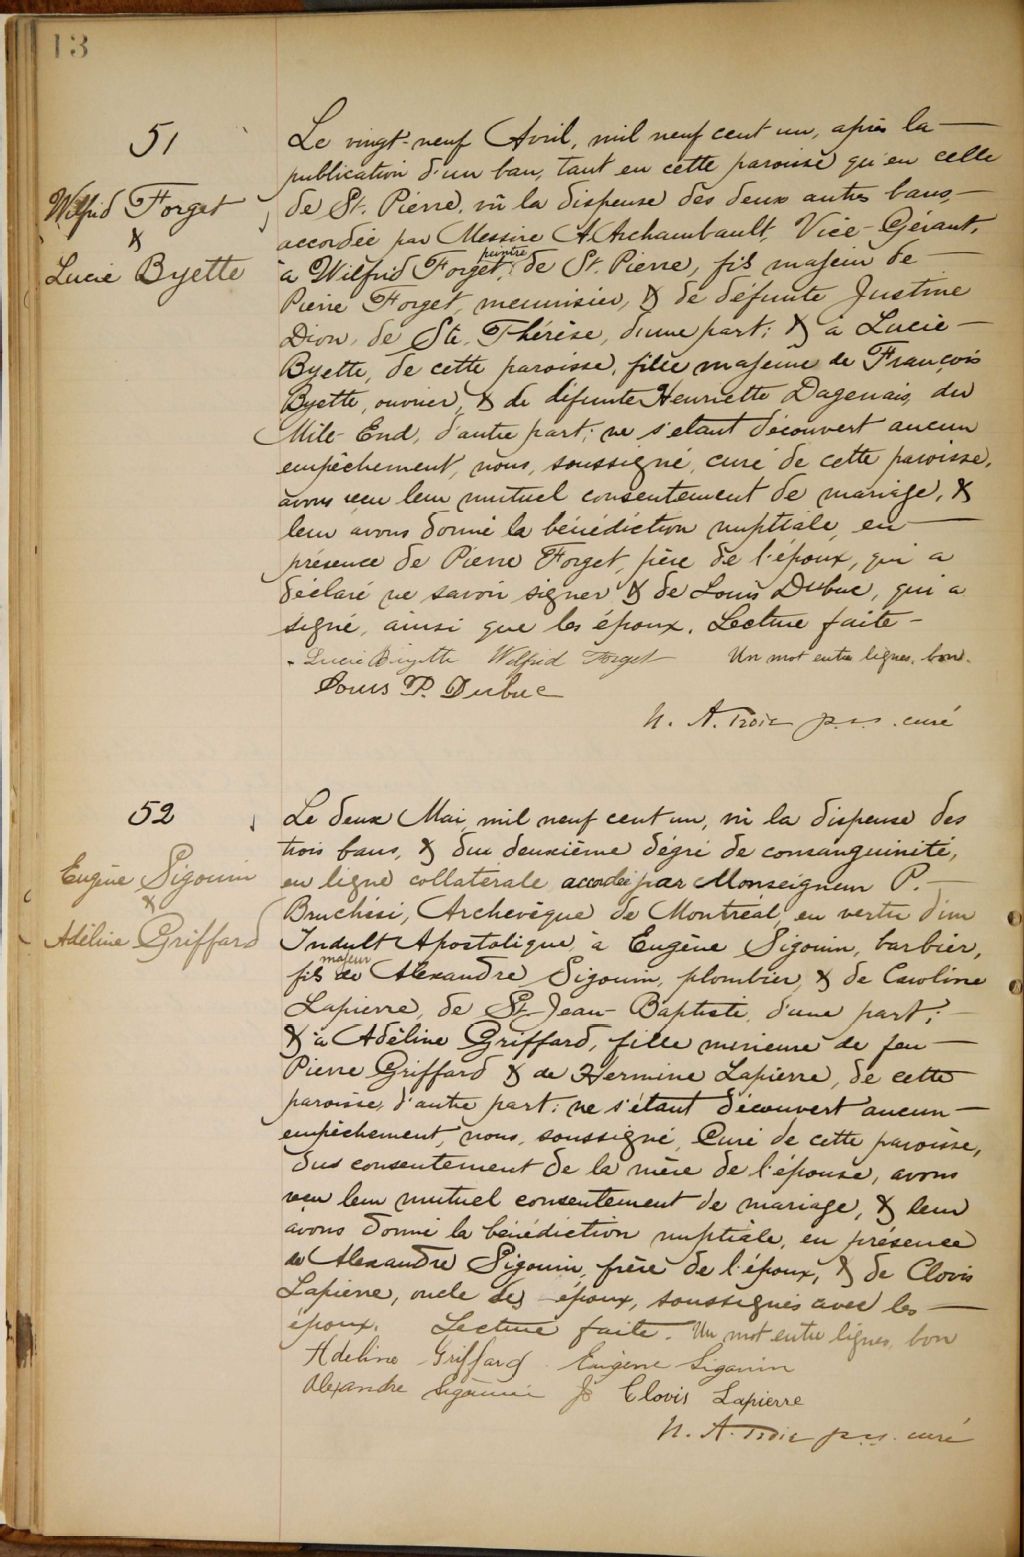 13
51
Wilfrid Forget
&
Lucie Byette
Le vingt-neuf Avril, mil neuf cent un, après la
publication d'un ban, tant en cette paroisse qu'en celle
de St. Pierre, vû la dispense des deux autres bans,
accordée par Messire A. Archambault, Vice-Gérant,
peintre
à Wilfrid Forget, de St. Pierre, fils majeur de
Pierre Forget, menuisier, & de défunte Justine
Dion, de Ste. Thérèse, d'une part; & à Lucie
Byette, de cette paroisse, fille majeure de François
Byette, ouvrier, & de défunte Henriette Dagenais, du
Mile-End, d'autre part; ne s'étant découvert aucun
empêchement, nous, soussigné, curé de cette paroisse,
avons reçu leur mutuel consentement de mariage, &
leur avons donné la bénédiction nuptiale, en
présence de Pierre Forget, père de l'époux, qui a
déclaré ne savoir signer & de Louis Dubuc, qui a
signé, ainsi que les époux. Lecture faite
Lucie Biyette Wilfrid Forget Un mot entre lignes, bon.
Louis P. Dubuc
N. A. Troie p.s.s. curé
52
Eugène Sigouin
&
Adéline Griffard
Le deux Mai, mil neuf cent un, vû la dispense des
trois bans, & du deuxième dégré de consanguinité,
en ligne collatérale accordée par Monseigneur P.
Bruchési, Archevêque de Montréal, en vertu d'un
Indult Apostolique, à Eugène Sigouin, barbier,
majeur
fils de Alexandre Sigouin, plombier, & de Caroline
Lapierre, de St-Jean-Baptiste, d'une part;
& à Adéline Griffard, fille mineure de feu
Pierre Griffard & de Hermine Lapierre, de cette
paroisse, d'autre part; ne s'étant découvert aucun
empêchement, nous, soussigné, Curé de cette paroisse,
du consentement de la mère de l'épouse, avons
reçu leur mutuel consentement de mariage, & leur
avons donné la bénédiction nuptiale, en présence
de Alexandre Sigouin, frère de l'époux, & de Clovis
Lapierre, oncle des époux, soussignés avec les
époux. Lecture faite. Un mot entre lignes, bon
Adeline Griffard Eugène Sigouin
Alexandre Sigouin Js Clovis Lapierre
N. A. Troie p.s.s. curé